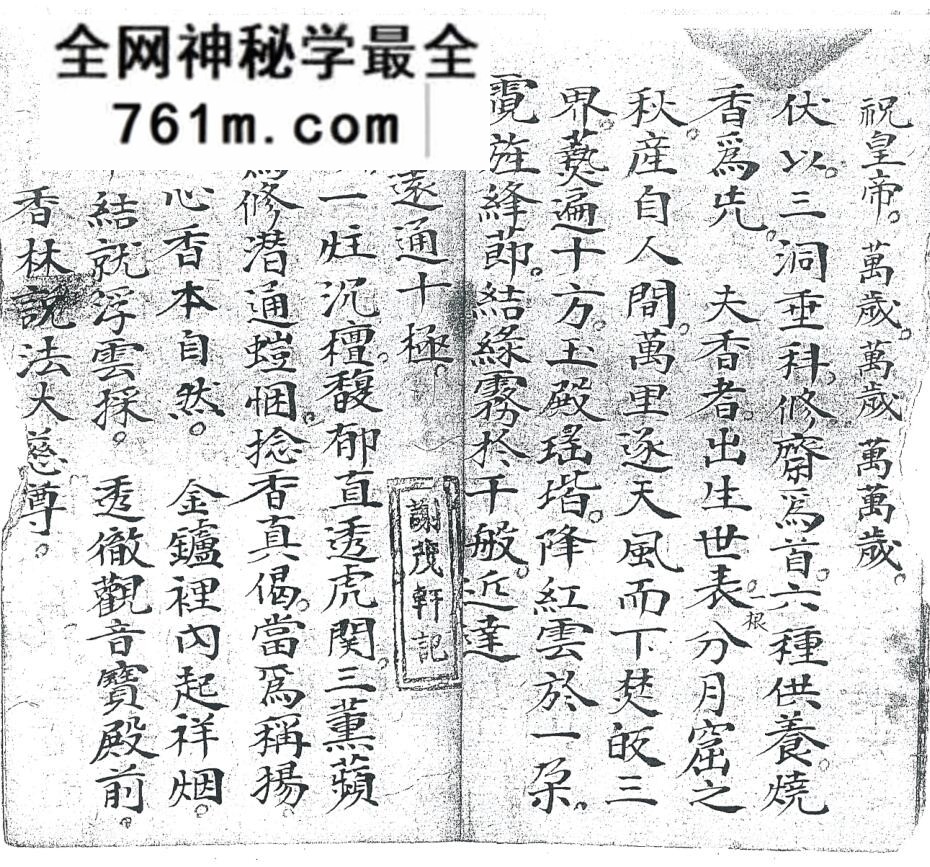 全网神秘学最全
761m.com
祝皇帝。萬歲。萬歲萬萬歲。
伏以。三洞垂科。修齋爲首。六種供養。燒
香爲先。夫香者。出生世表。一根分月窟之
秋。産自人間。萬里逐天風而下焚皈三
界。爇遍十方。玉殿瑤堦。降紅雲於一朶。
霓旌絳節。結綠霧於千般。近達
遠通十極。
謝茂軒記
一炷沉檀。馥郁直透虎関。三薰蘋
修。潜通螘悃。捻香真偈。當爲稱揚
心香本自然。金鑪裡內起祥烟。
結就浮雲採。透徹觀音寶殿前。
香林說法大慈尊。